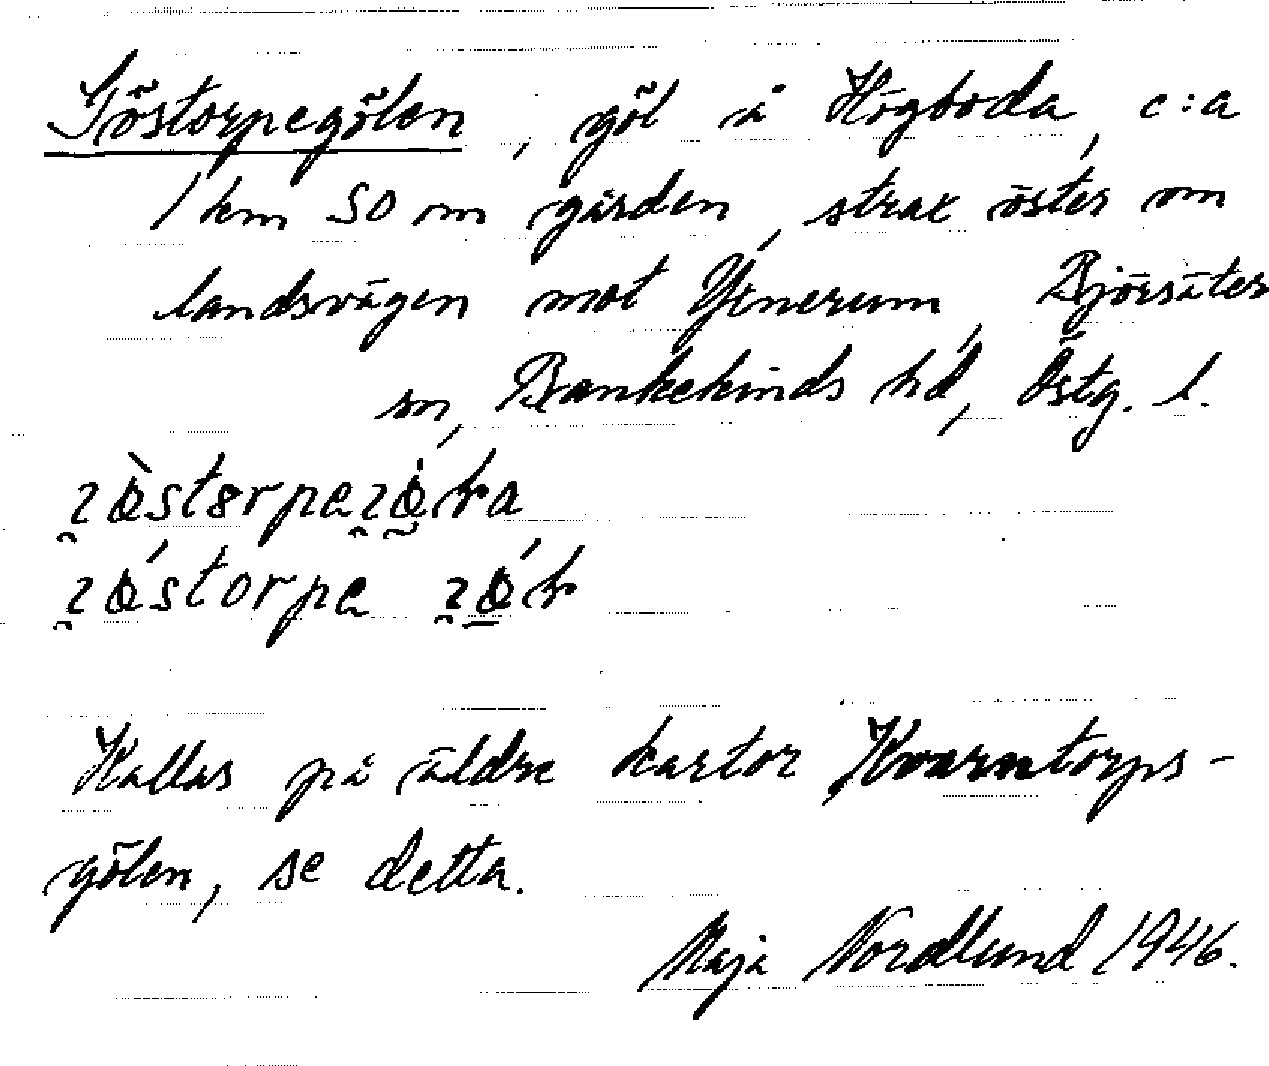 Göstorpegölen, göl å Högboda, c:a
1 km SO om gården, strax öster om
landsvägen mot Yxnerum, Björsäters
sn, Bankekinds hd, Östg. l.
Kallas på äldre kartor Kvarntorps-
gölen, se detta.
Maja Nordlund 1946.